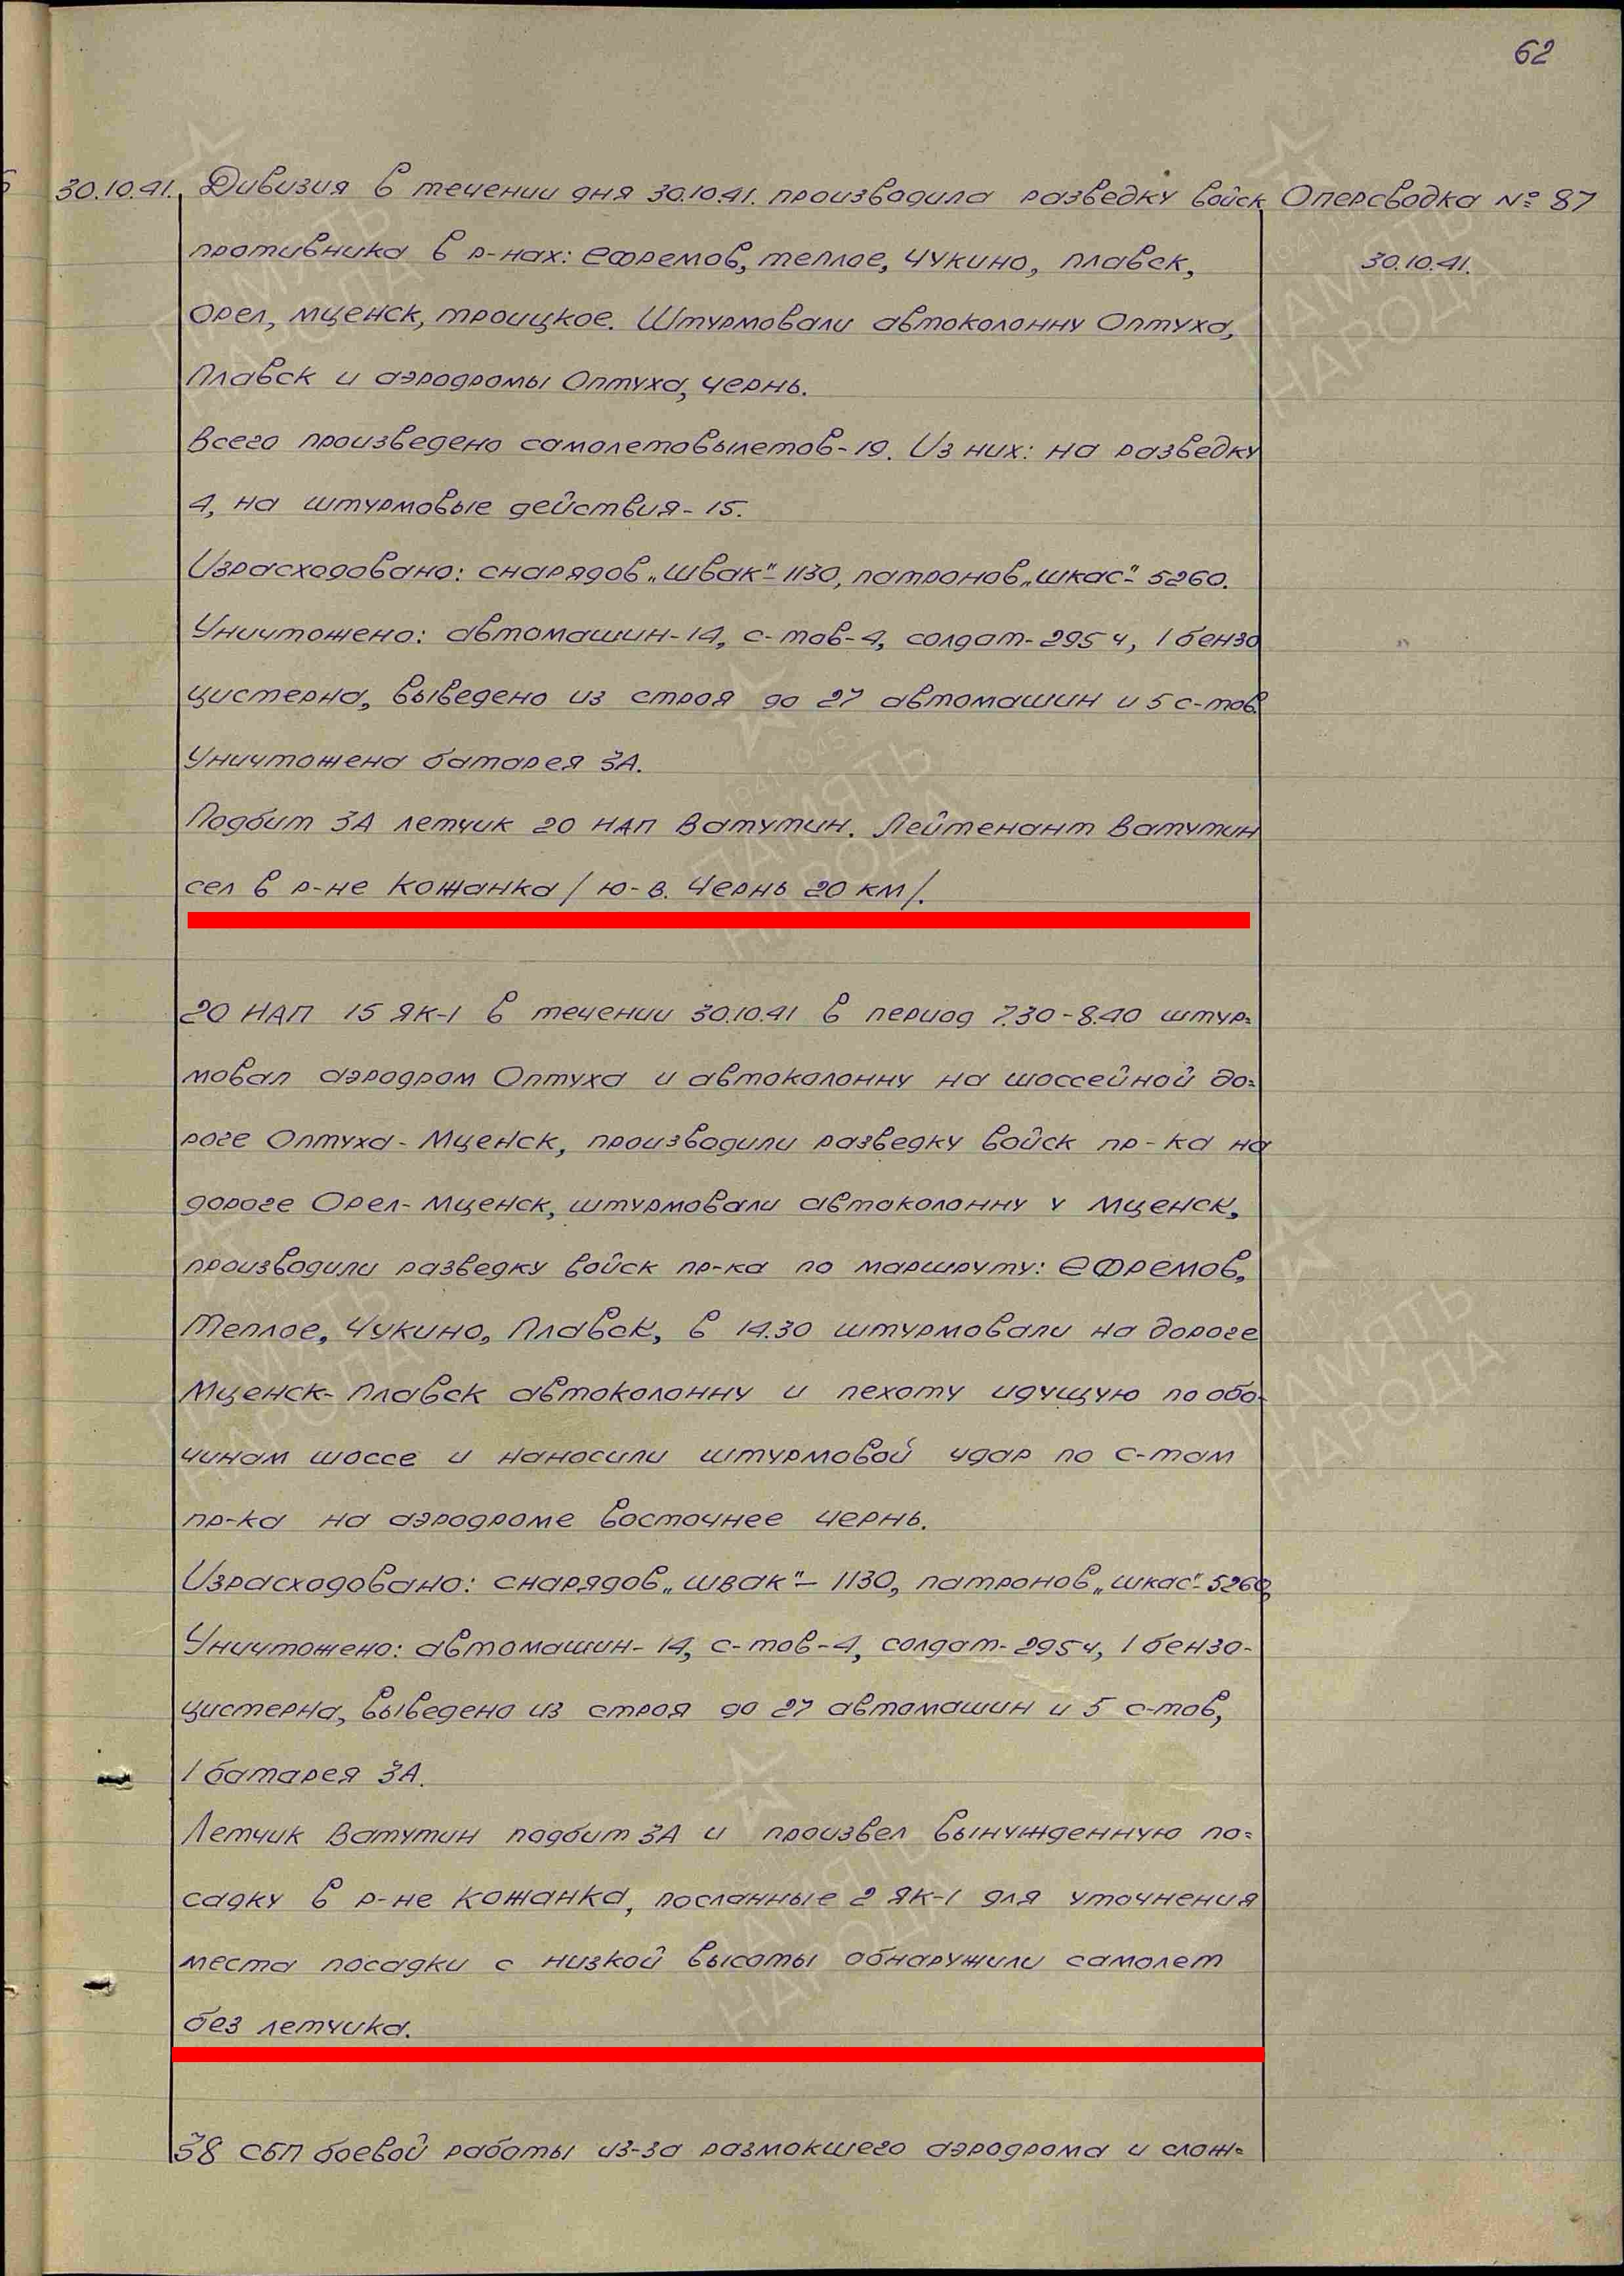 62
30.10.41. Дивизия в течении дня 30.10.41. производила разведку войск Оперсводка № 87
противника в р-нах: Ефремов, теплое, Чукино, плавск, 30.10.41.
Орел, мценск, троицкое. Штурмовали автоколонну Оптуха,
Плавск и аэродромы Оптуха, Чернь.
Всего произведено самолетовылетов-19. Из них: на разведку
4, на штурмовые действия-15.
Израсходовано: снарядов „швак“-1130, патронов „шкас“-5260.
Уничтожено: автомашин-14, с-тов-4, солдат-295 ч, 1 бензо
цистерна, выведено из строя до 27 автомашин и 5 с-тов.
Уничтожена батарея ЗА.
Подбит ЗА летчик 20 НАП Ватутин. Лейтенант Ватутин
сел в р-не Кожанка /ю-в. Чернь 20 км/.
20 НАП 15 ЯК-1 в течении 30.10.41 в период 7.30-8.40 штур=
мовал аэродром Оптуха и автоколонну на шоссейной до=
роге Оптуха-Мценск, производили разведку войск пр-ка на
дороге Орел-Мценск, штурмовали автоколонну у Мценск,
производили разведку войск пр-ка по маршруту: Ефремов,
Теплое, Чукино, Плавск, в 14.30 штурмовали на дороге
Мценск-Плавск автоколонну и пехоту идущую по обо-
чинам шоссе и наносили штурмовой удар по с-там
пр-ка на аэродроме восточнее Чернь.
Израсходовано: снарядов „швак“-1130, патронов „шкас“-5260,
Уничтожено: автомашин-14, с-тов-4, солдат-295ч, 1 бензо-
цистерна, выведено из строя до 27 автомашин и 5 с-тов,
1 батарея ЗА.
Летчик Ватутин подбит ЗА и произвел вынужденную по=
садку в р-не Кожанка, посланные 2 ЯК-1 для уточнения
места посадки с низкой высоты обнаружили самолет
без летчика.
38 СБП боевой работы из-за размокшего аэродрома и слож=
1941 1945
ПАМЯТЬ
НАРОДА